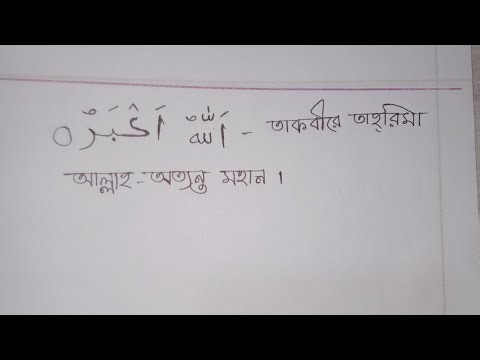 اَللّٰهُ اَكْبَرْ ০ - তাকবীরে তাহ্‌রিমা
আল্লাহ - অত্যন্ত মহান ।